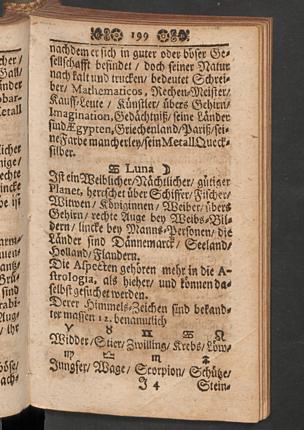 199
nachdem er sich in guter oder böser Ge-
sellschafft befindet / doch seiner Natur
nach kalt und trucken / bedeutet Schrei-
ber / Mathematicos, Rechen-Meister /
Kauff-Leute / Künstler / übers Gehirn /
Imagination, Gedächtniß / seine Länder
sind Ægypten, Griechenland / Pariß / sei-
ne Farbe mancherley / sein Metall Queck-
silber.
♋ Luna ☽
Ist ein Weiblicher / Nächtlicher / gütiger
Planet, herrschet über Schiffer / Fischer /
Witwen / Königinnen / Weiber / übers
Gehirn / rechte Auge bey Weibs-Bil-
dern / lincke bey Manns-Personen / die
Länder sind Dännemarck / Seeland /
Holland / Flandern.
Die Aspecten gehören mehr in die A-
strologia, als hieher / und können da-
selbst gesuchet werden.
Derer Himmels-Zeichen sind bekand-
ter massen 12. benanntlich
♈ ♉ ♊ ♋ ♌
Widder / Stier / Zwilling / Krebs / Löw-
♍ ♎ ♏ ♐
Jungfer / Wage / Scorpion / Schütze /
J 4 Stein-